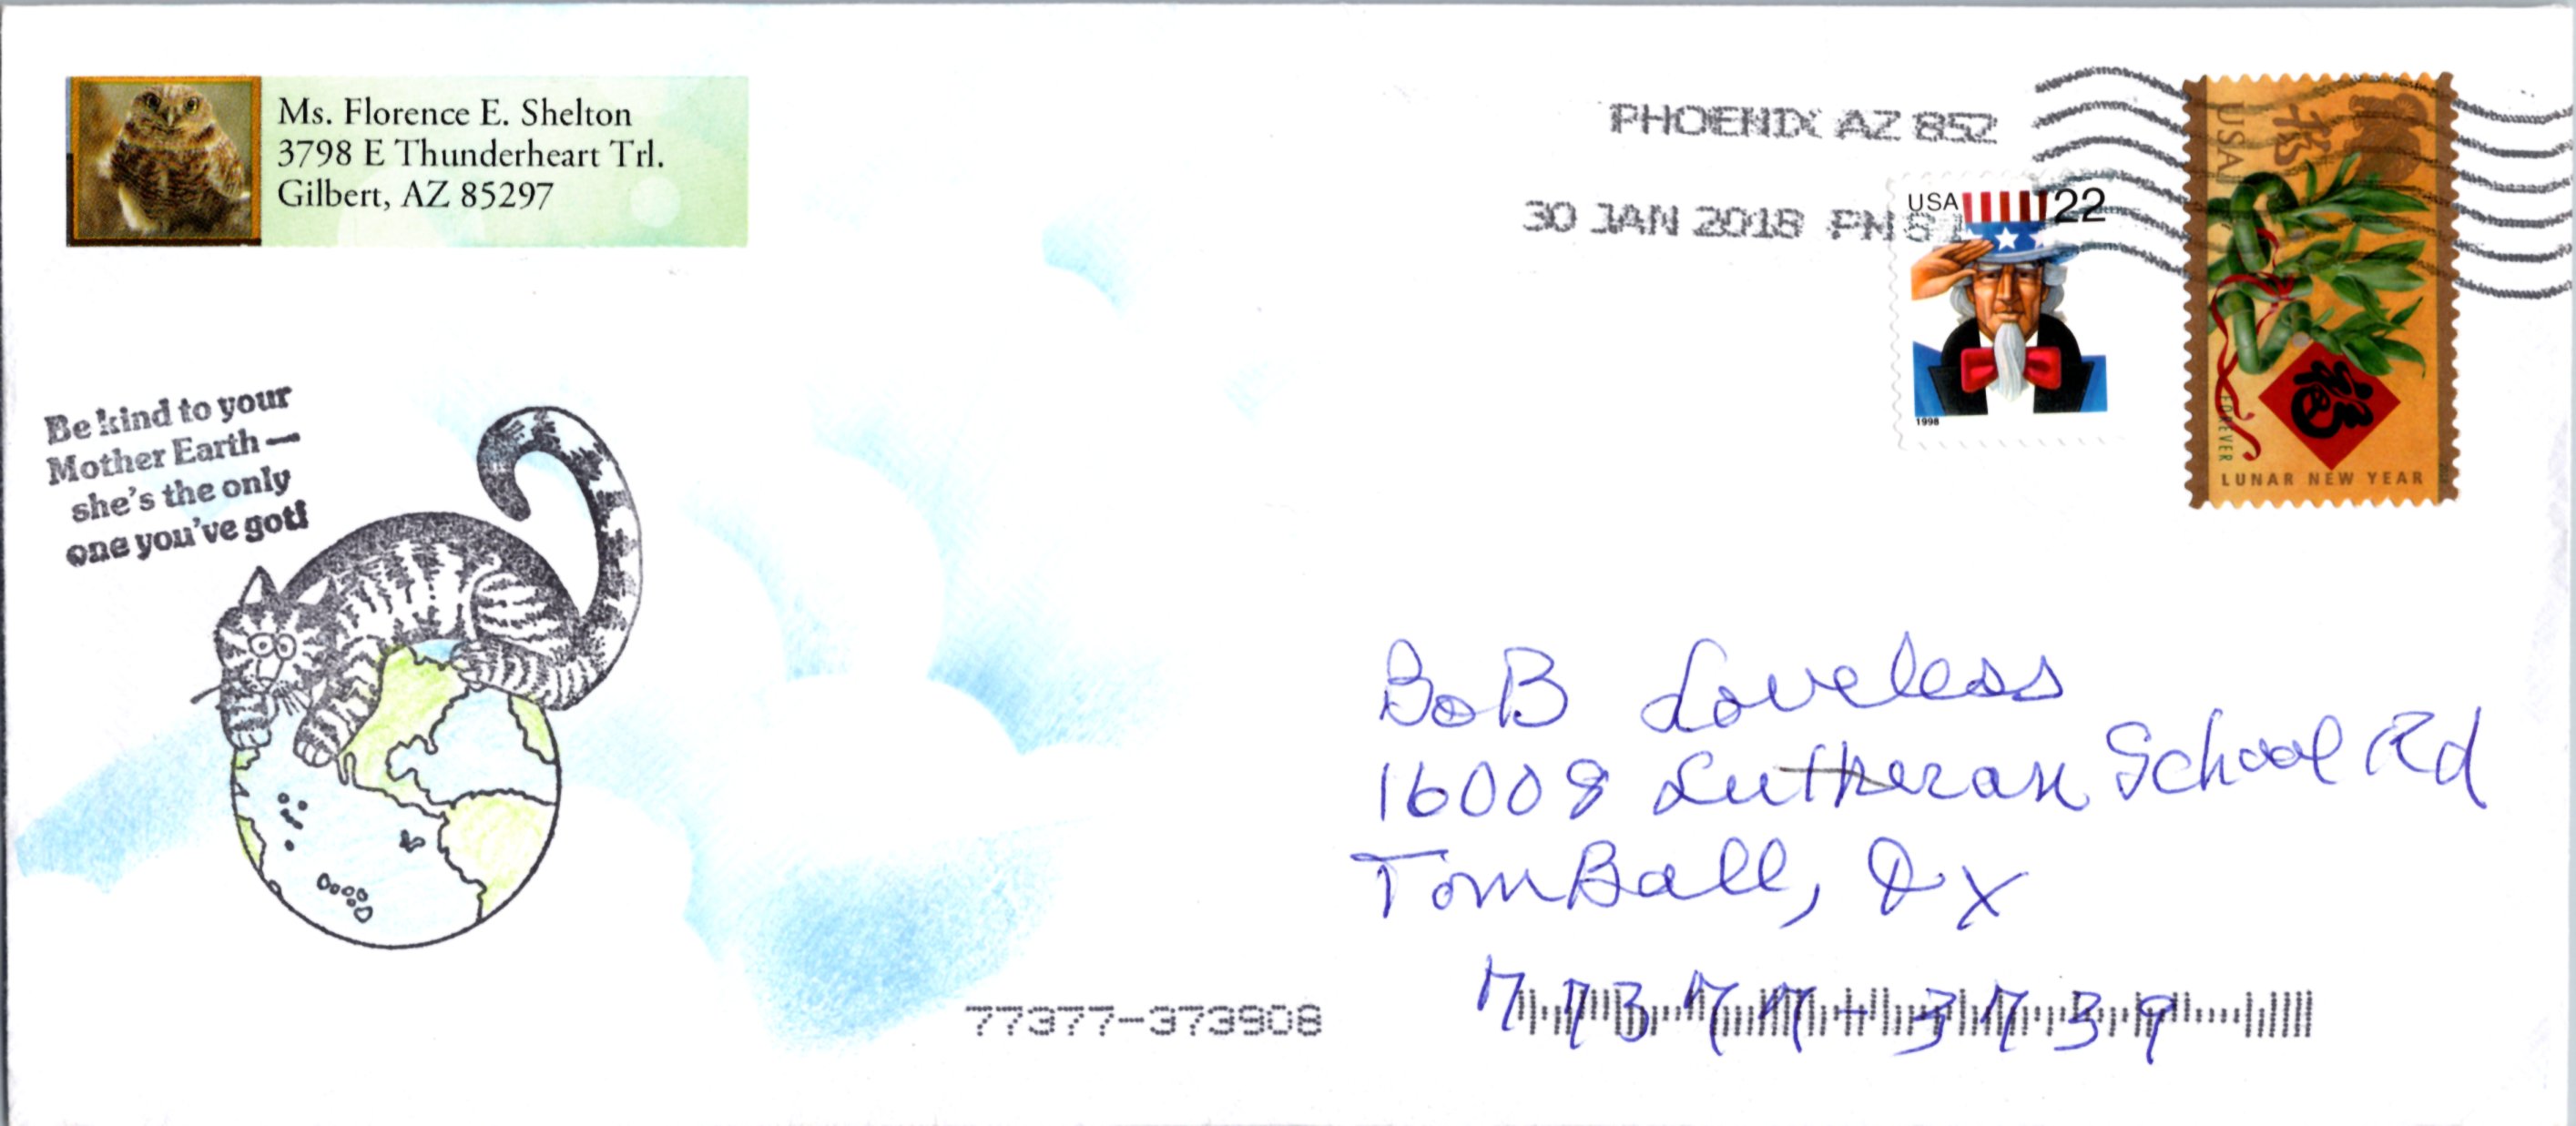 Ms. Florence E. Shelton
3798 E Thunderheart Trl.
Gilbert, AZ 85297
PHOENIX AZ 852
30 JAN 2018 PM
USA 22
1998
USA
福
FOREVER
LUNAR NEW YEAR
Be kind to your
Mother Earth —
she's the only
one you've got!
BoB Loveless
16008 Lutheran School Rd
TomBall, Tx
77377-3739
77377-373908